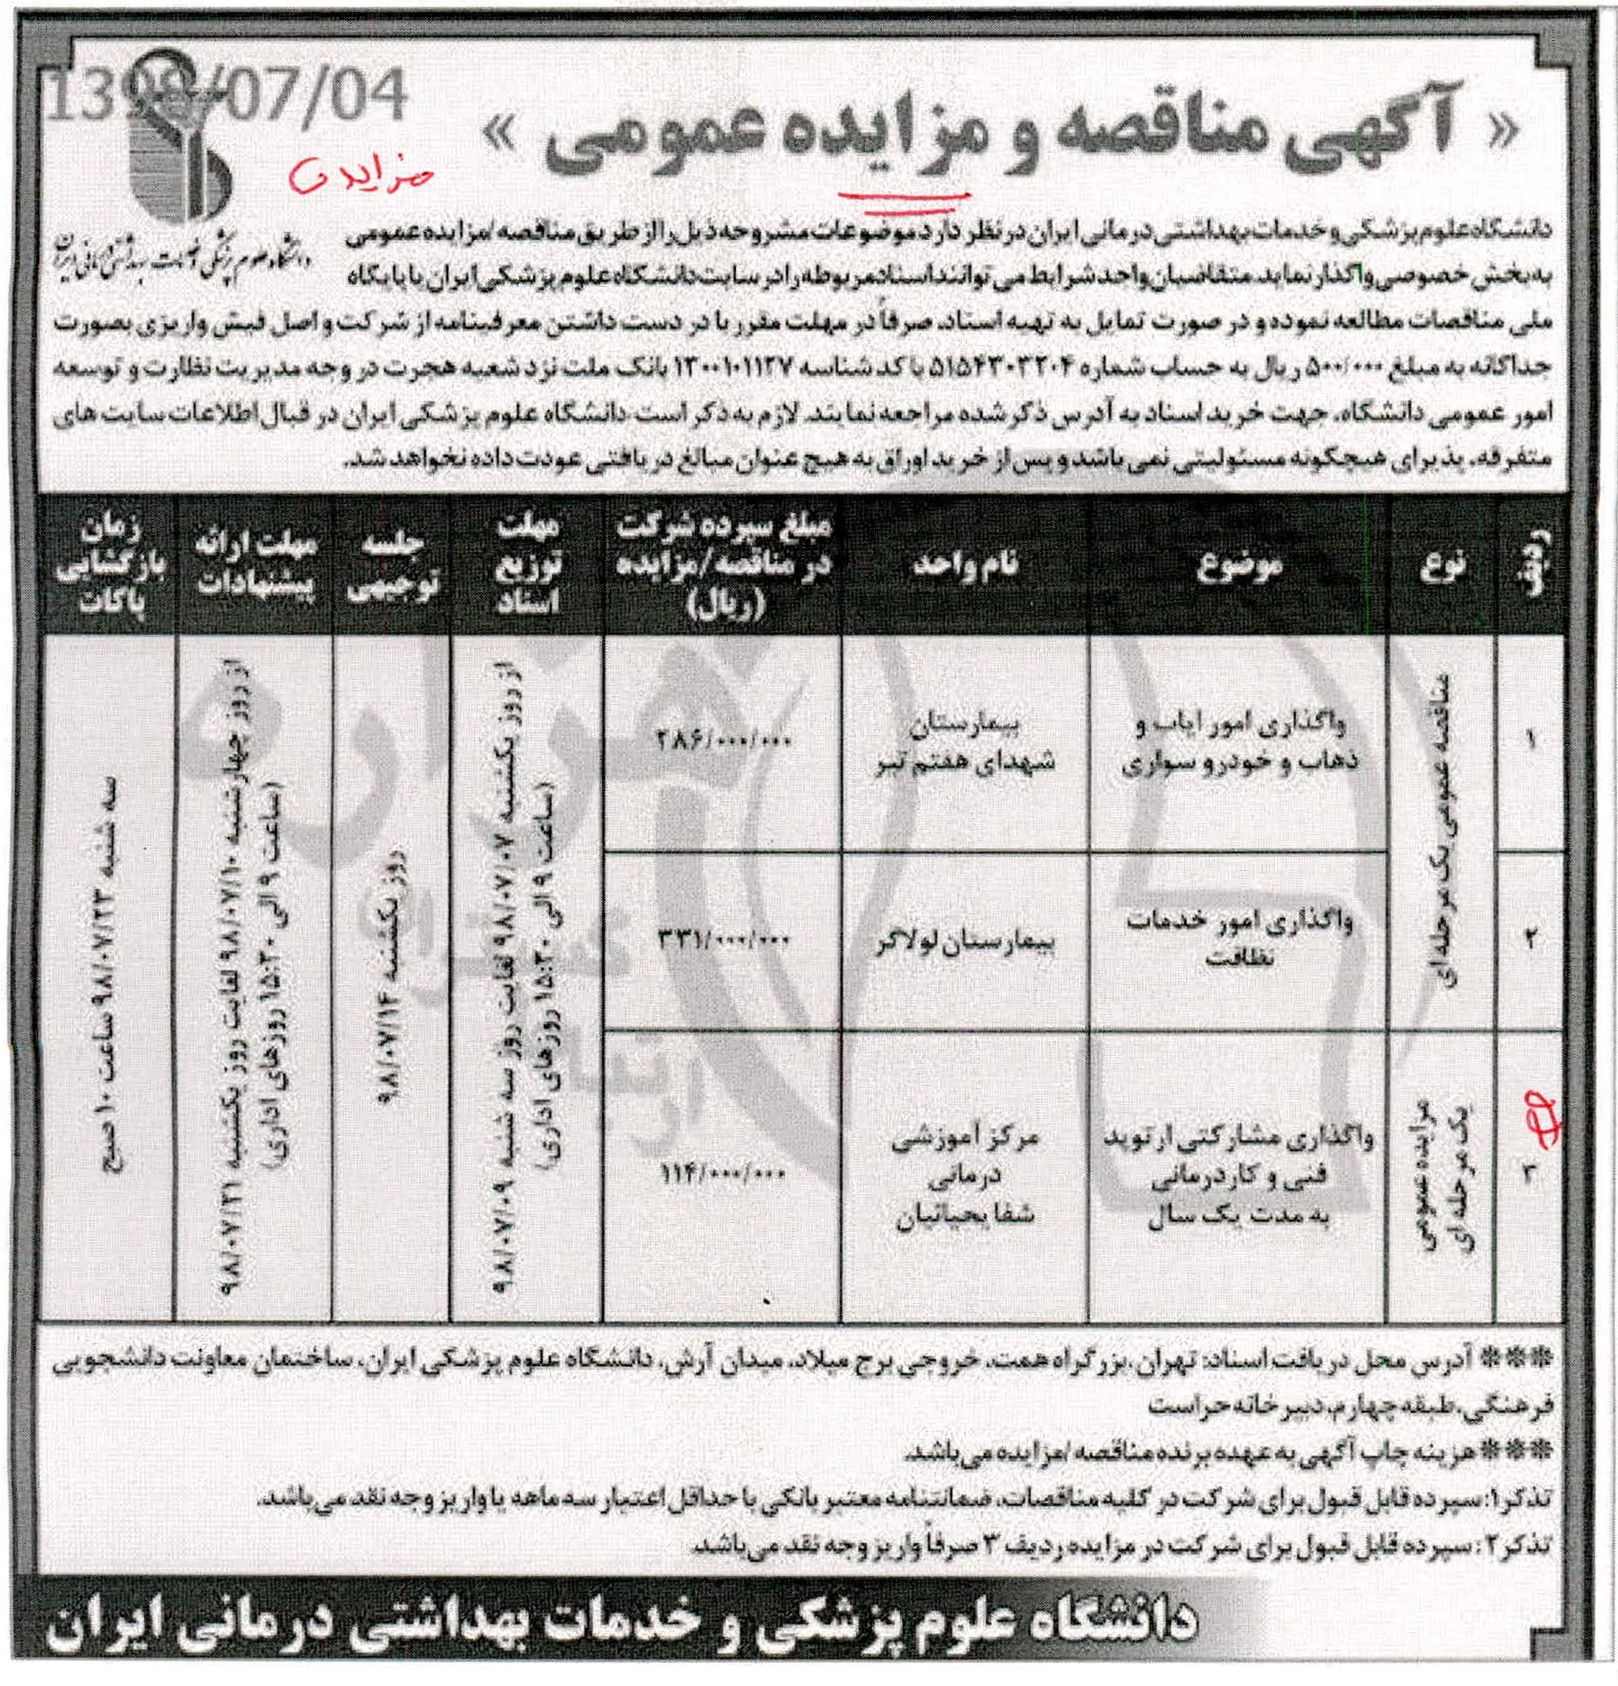 1398/07/04
« آگهی مناقصه و مزایده عمومی »
مزایده
دانشگاه علوم پزشکی و خدمات بهداشتی درمانی ایران
دانشگاه علوم پزشکی و خدمات بهداشتی درمانی ایران در نظر دارد موضوعات مشروحه ذیل را از طریق مناقصه/مزایده عمومی
به بخش خصوصی واگذار نماید. متقاضیان واجد شرایط می توانند اسناد مربوطه را در سایت دانشگاه علوم پزشکی ایران یا پایگاه
ملی مناقصات مطالعه نموده و در صورت تمایل به تهیه اسناد، صرفاً در مهلت مقرر با در دست داشتن معرفینامه از شرکت و اصل فیش واریزی بصورت
جداگانه به مبلغ ۵۰۰/۰۰۰ ریال به حساب شماره ۵۱۵۴۳۰۳۲۰۴ با کد شناسه ۱۳۰۰۱۰۱۱۲۷ بانک ملت نزد شعبه هجرت در وجه مدیریت نظارت و توسعه
امور عمومی دانشگاه، جهت خرید اسناد به آدرس ذکر شده مراجعه نمایند. لازم به ذکر است دانشگاه علوم پزشکی ایران در قبال اطلاعات سایت های
متفرقه، پذیرای هیچگونه مسئولیتی نمی باشد و پس از خرید اوراق به هیچ عنوان مبالغ دریافتی عودت داده نخواهد شد.
ردیف
نوع
موضوع
نام واحد
مبلغ سپرده شرکت
در مناقصه/مزایده
(ریال)
مهلت
توزیع
اسناد
جلسه
توجیهی
مهلت ارائه
پیشنهادات
زمان
بازگشایی
پاکات
۱
مناقصه عمومی یک مرحله ای
واگذاری امور ایاب و
ذهاب و خودرو سواری
بیمارستان
شهدای هفتم تیر
۲۸۶/۰۰۰/۰۰۰
از روز یکشنبه ۹۸/۰۷/۰۷ لغایت روز سه شنبه ۹۸/۰۷/۰۹
(ساعت ۹ الی ۱۵:۳۰ روزهای اداری)
روز یکشنبه ۹۸/۰۷/۱۴
از روز چهارشنبه ۹۸/۰۷/۱۰ لغایت روز یکشنبه ۹۸/۰۷/۲۱
(ساعت ۹ الی ۱۵:۳۰ روزهای اداری)
سه شنبه ۹۸/۰۷/۲۳ ساعت ۱۰ صبح
۲
واگذاری امور خدمات
نظافت
بیمارستان لولاگر
۳۳۱/۰۰۰/۰۰۰
۳
مزایده عمومی
یک مرحله ای
واگذاری مشارکتی ارتوپد
فنی و کاردرمانی
به مدت یک سال
مرکز آموزشی
درمانی
شفا یحیائیان
۱۱۴/۰۰۰/۰۰۰
*** آدرس محل دریافت اسناد: تهران، بزرگراه همت، خروجی برج میلاد، میدان آرش، دانشگاه علوم پزشکی ایران، ساختمان معاونت دانشجویی
فرهنگی، طبقه چهارم، دبیرخانه حراست
*** هزینه چاپ آگهی به عهده برنده مناقصه/مزایده می باشد.
تذکر۱: سپرده قابل قبول برای شرکت در کلیه مناقصات، ضمانتنامه معتبر بانکی با حداقل اعتبار سه ماهه یا واریز وجه نقد می باشد.
تذکر۲: سپرده قابل قبول برای شرکت در مزایده ردیف ۳ صرفاً واریز وجه نقد می باشد.
دانشگاه علوم پزشکی و خدمات بهداشتی درمانی ایران